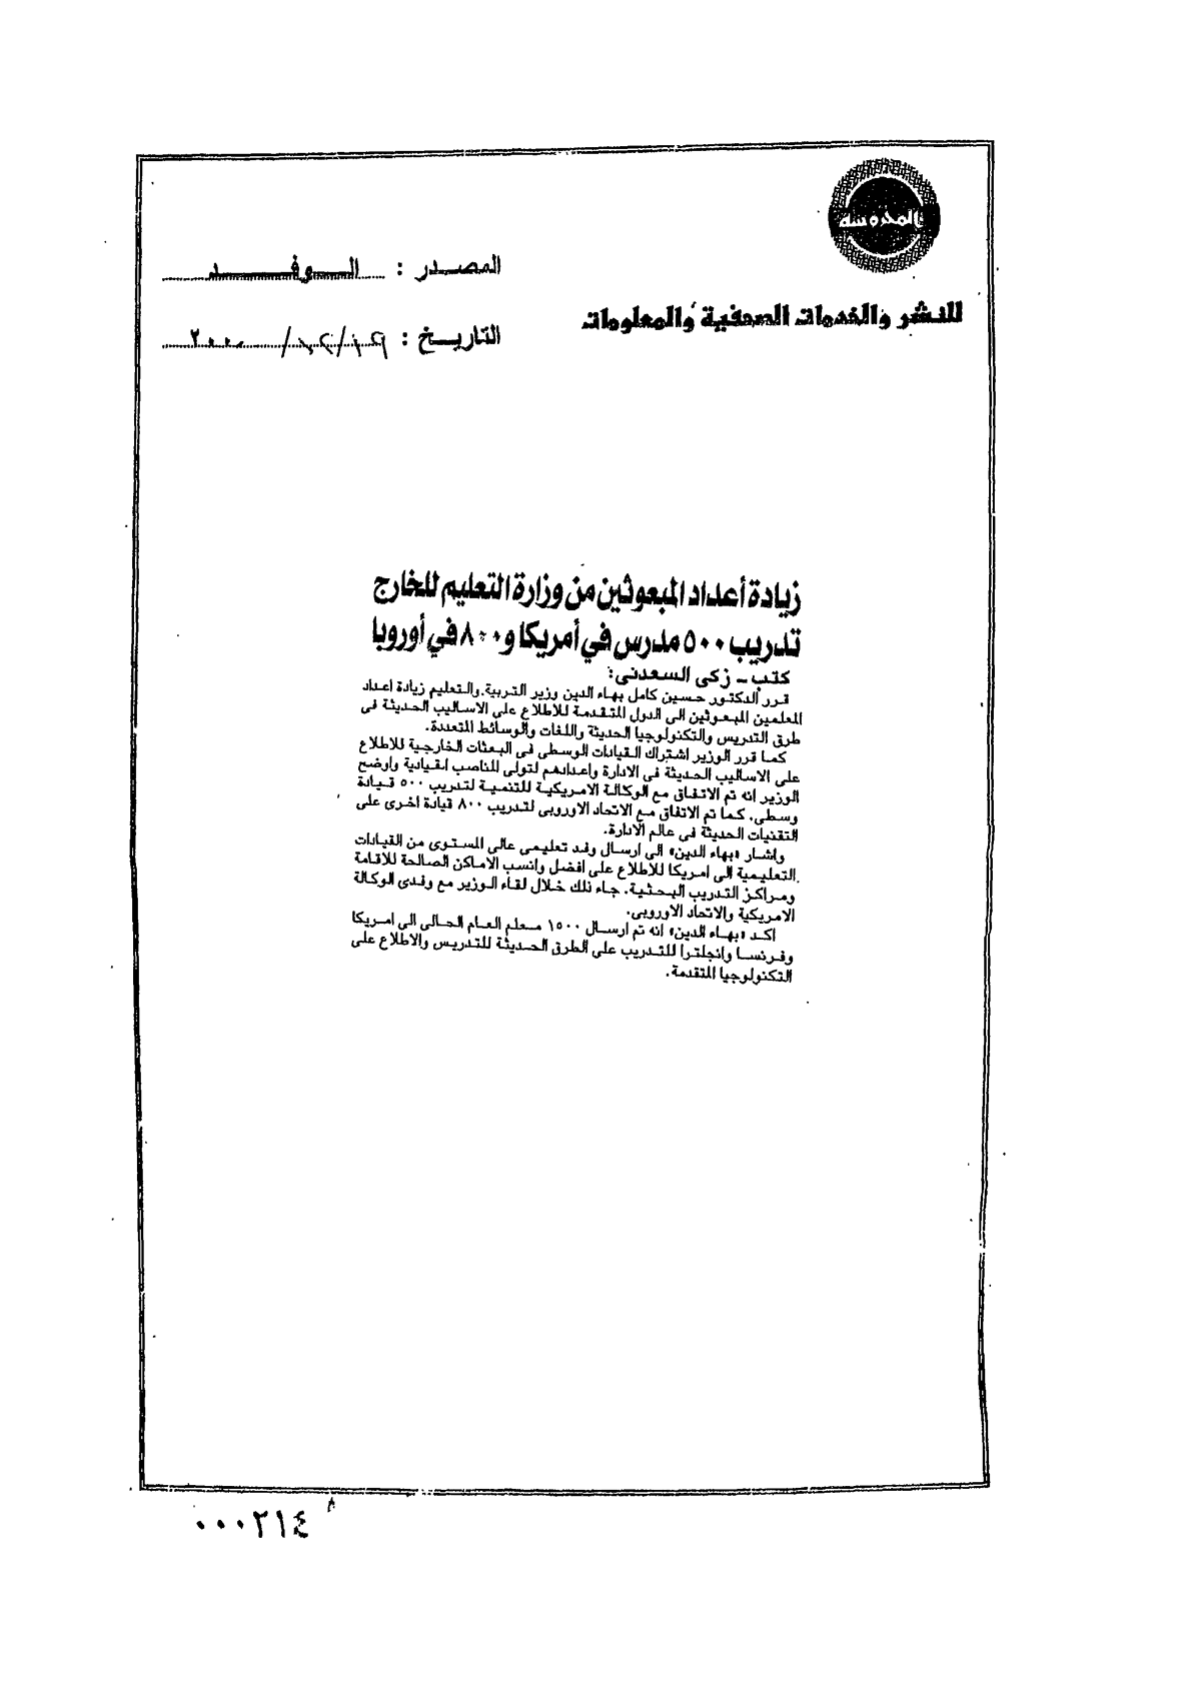 المحروسة
للنشر والخدمات الصحفية والمعلومات
المصدر : الوفد
التاريخ : ١٩/١٢/٢٠٠٠
زيادة أعداد المبعوثين من وزارة التعليم للخارج
تدريب ٥٠٠ مدرس في أمريكا و٨٠٠ في أوروبا
كتب - زكى السعدنى:
قرر الدكتور حسين كامل بهاء الدين وزير التربية والتعليم زيادة اعداد
المعلمين المبعوثين الى الدول المتقدمة للاطلاع على الاساليب الحديثة فى
طرق التدريس والتكنولوجيا الحديثة واللغات والوسائط المتعددة.
كما قرر الوزير اشتراك القيادات الوسطى فى البعثات الخارجية للاطلاع
على الاساليب الحديثة فى الادارة واعدادهم لتولى المناصب القيادية واوضح
الوزير انه تم الاتفاق مع الوكالة الامريكية للتنمية لتدريب ٥٠٠ قيادة
وسطى. كما تم الاتفاق مع الاتحاد الاوروبى لتدريب ٨٠٠ قيادة اخرى على
التقنيات الحديثة فى عالم الادارة.
واشار «بهاء الدين» الى ارسال وفد تعليمى عالى المستوى من القيادات
التعليمية الى امريكا للاطلاع على افضل وانسب الاماكن الصالحة للاقامة
ومراكز التدريب البحثية. جاء ذلك خلال لقاء الوزير مع وفدى الوكالة
الامريكية والاتحاد الاوروبى.
اكد «بهاء الدين» انه تم ارسال ١٥٠٠ معلم العام الحالى الى امريكا
وفرنسا وانجلترا للتدريب على الطرق الحديثة للتدريس والاطلاع على
التكنولوجيا المتقدمة.
٠٠٠٢١٤